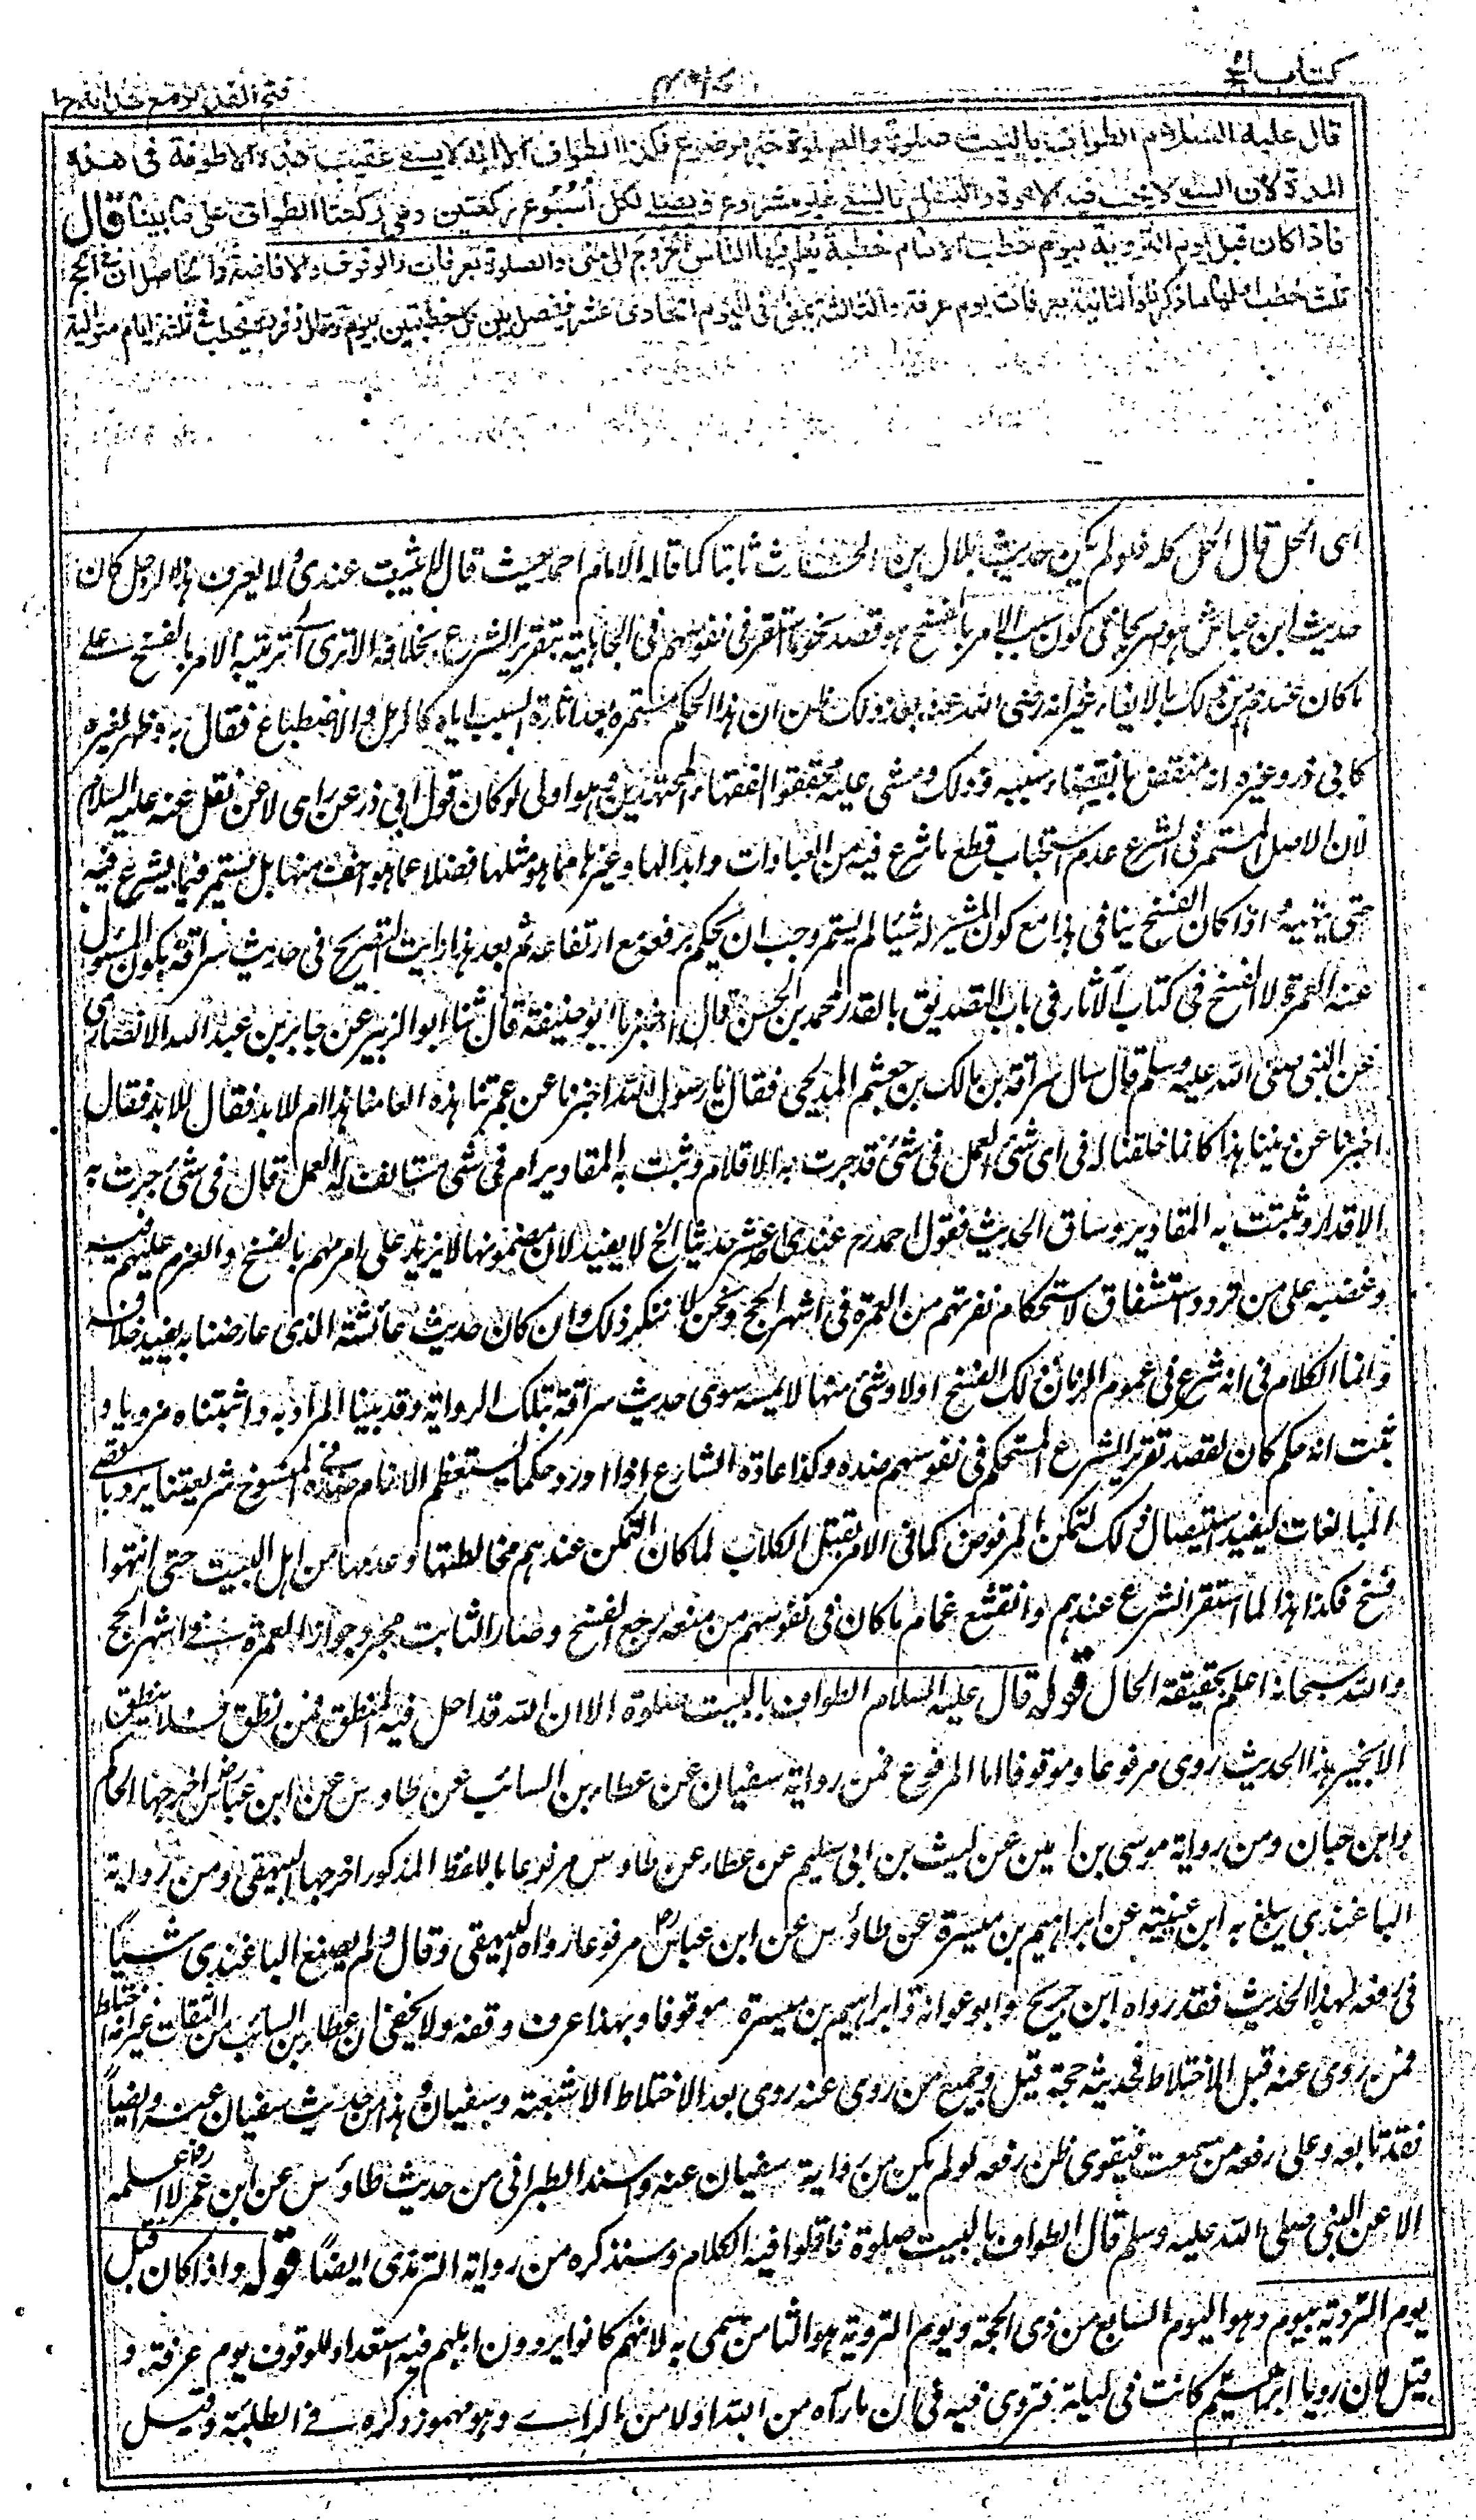 كتاب الحج
فتح القدير مع هداية ج ١
قال عليه السلام الطواف بالبيت صلوة والصلوة خير موضوع فكذا الطواف الا انه لا يسعى عقيب هذه الاطوفة فى هذه
المدة لان السعى لا يجب فيه الا مرة والتنفل بالسعى غير مشروع ويصلى لكل أسبوع ركعتين وهى ركعتا الطواف على ما بينا قال
فاذا كان قبل يوم التروية بيوم خطب الامام خطبة يعلم فيها الناس الخروج الى منى والصلوة بعرفات والوقوف والافاضة والحاصل ان فى الحج
ثلث خطب اولها ما ذكرنا والثانية بعرفات يوم عرفة والثالثة بمنى فى اليوم الحادى عشر فيفصل بين كل خطبتين بيوم وقال زفر يخطب فى ثلثة ايام متوالية
اى الحل قال الحل كله فلو لم يكن حديث بلال بن الحارث ثابتا كما قاله الامام احمد حيث قال لا يثبت عندى ولا يعرف هذا الرجل كان
حديث ابن عباس هو صريحا فى كون سبب الامر بالفسخ هو قصد محو ما استقر فى نفوسهم فى الجاهلية بتقرير الشرع بخلافه الا ترى الى ترتيبه الامر بالفسخ على
ما كان عندهم من ذلك بالفاء غير انه رضى الله عنه بعد ذلك ظن ان هذا الحكم مستمر بعد اثارة السبب اياه كالرمل والاضطباع فقال به وظهر لغيره
كابى ذر وغيره انه منقض بانقضاء سببه ذلك ومشى عليه محققوا الفقهاء المجتهدين وهو اولى لو كان قول ابى ذر عن راى لا عن نقل عنه عليه السلام
لان الاصل المستمر فى الشرع عدم استحباب قطع ما شرع فيه من العبادات وابدالها وغيرها مما هو مثلها فضلا عما هو اخف منها بل يستمر فيما شرع فيه
حتى ينهيه واذا كان الفسخ ينافى هذا مع كون المثير له شيئا لم يستمر وجب ان يحكم برفعه مع ارتفاعه ثم بعد هذا رايت التصريح فى حديث سراقة بكون المسئول
عنه العمرة لا الفسخ فى كتاب الآثار فى باب التصديق بالقدر لمحمد بن الحسن قال اخبرنا ابو حنيفة قال ثنا ابو الزبير عن جابر بن عبد الله الانصارى
عن النبى صلى الله عليه وسلم قال سال سراقة بن مالك بن جعشم المدلجى فقال يا رسول الله اخبرنا عن عمرتنا هذه العامنا هذا ام للابد فقال للابد فقال
اخبرنا عن ديننا هذا كانما خلقنا له فى اى شئ العمل فى شئ قد جرت به الاقلام وثبتت به المقادير ام فى شئ مستانف له العمل قال فى شئ جرت به
الاقدار وثبتت به المقادير وساق الحديث فقول احمد رح عندى احد عشر حديثا الخ لا يفيد لان مضمونها لا يزيد على امرهم بالفسخ والعزم عليهم فيه
وغضبه على من تردد استشفاق لاستحكام نفرتهم من العمرة فى اشهر الحج ونحن لا ننكر ذلك وان كان حديث عائشة الذى عارضنا به يفيد خلافه
وانما الكلام فى انه شرع فى عموم الزمان ذلك الفسخ اولا وشئ منها لا يمسه سوى حديث سراقة بتلك الرواية وقد بينا المراد به واثبتناه مرويا و
ثبت انه حكم كان لقصد تقرير الشرع المستحكم فى نفوسهم ضده وكذا عادة الشارع اذا اورد حكما يستعظم الانام ضده المنسوخ فى شريعتنا يرد باقصى
المبالغات ليفيد استيصال ذلك التمكن المرفوض كما فى الامر بقتل الكلاب لما كان التمكن عندهم مخالطتها وعدها من اهل البيت حتى انتهوا
فنسخ فكذا هذا لما استقر الشرع عندهم وانقشع غمام ما كان فى نفوسهم من منعه رجع الفسخ وصار الثابت مجرد جواز العمرة فى اشهر الحج
والله سبحانه اعلم بحقيقة الحال قوله قال عليه السلام الطواف بالبيت صلوة الا ان الله قد احل فيه المنطق فمن نطق فلا ينطق
الا بخير هذا الحديث روى مرفوعا وموقوفا اما المرفوع فمن رواية سفيان عن عطاء بن السائب عن طاوس عن ابن عباس رض اخرجها الحاكم
وابن حبان ومن رواية موسى بن اعين عن ليث بن ابى سليم عن عطاء عن طاوس مرفوعا باللفظ المذكور اخرجها البيهقى ومن رواية
الباغندى يبلغ به ابن عيينة عن ابراهيم بن ميسرة عن طاؤس عن ابن عباس رض مرفوعا رواه البيهقى وقال ولم يصنع الباغندى شيأ
فى رفعه لهذا الحديث فقد رواه ابن جريج وابو عوانة وابراهيم بن ميسرة موقوفا وبهذا عرف وقفه ولا يخفى ان عطاء بن السائب من الثقات غير انه اختلط
فمن روى عنه قبل الاختلاط فحديثه حجة قيل وجميع من روى عنه روى بعد الاختلاط الا شعبة وسفيان وهذا من حديث سفيان عنه وايضاً
فقد تابعه وعلى رفعه من سمعت فيقوى ظن رفعه لو لم يكن من رواية سفيان عنه واسند الطبرانى من حديث طاؤس عن ابن عمر رض لا اعلمه
الا عن النبى صلى الله عليه وسلم قال الطواف بالبيت صلوة فاقلوا فيه الكلام وسنذكره من رواية الترمذى ايضاً قوله واذا كان قبل
يوم التروية بيوم وهو اليوم السابع من ذى الحجة ويوم التروية هو الثامن سمى به لانهم كانوا يروون ابلهم فيه استعدادا للوقوف يوم عرفة و
قيل لان رويا ابراهيم كانت فى ليلة فتروى فيه فى ان ما رآه من الله اولا من الراے وهو مهموز ذكره فى الطلبة وقيل